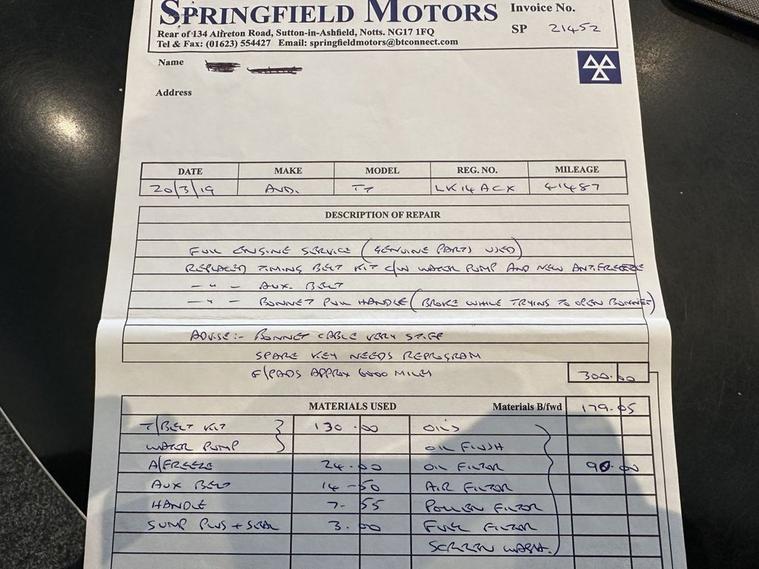 SPRINGFIELD MOTORS
Invoice No.
Rear of 134 Alfreton Road, Sutton-in-Ashfield, Notts. NG17 1FQ
SP 21452
Tel & Fax: (01623) 554427 Email: springfieldmotors@btconnect.com
Name
Address
DATE MAKE MODEL REG. NO. MILEAGE
20/3/19 AUD. TT LK14ACX 41487
DESCRIPTION OF REPAIR
FULL ENGINE SERVICE (GENUINE PARTS USED)
REPLACED TIMING BELT KIT C/W WATER PUMP AND NEW ANTIFREEZE
— " — AUX. BELT
— " — BONNET PULL HANDLE (BROKE WHILE TRYING TO OPEN BONNET)
ADVISE:- BONNET CABLE VERY STIFF
SPARE KEY NEEDS REPROGRAM
F/PADS APPROX 6000 MILES 300.00
MATERIALS USED Materials B/fwd 179.05
T/BELT KIT } 130.00 OILS
WATER PUMP } OIL FLUSH
A/FREEZE 24.00 OIL FILTOR 90.00
AUX BELT 14-50 AIR FILTOR
HANDLE 7.55 POLLEN FILTOR
SUMP PLUG + SEAL 3.00 FUEL FILTOR
SCREEN WASH.